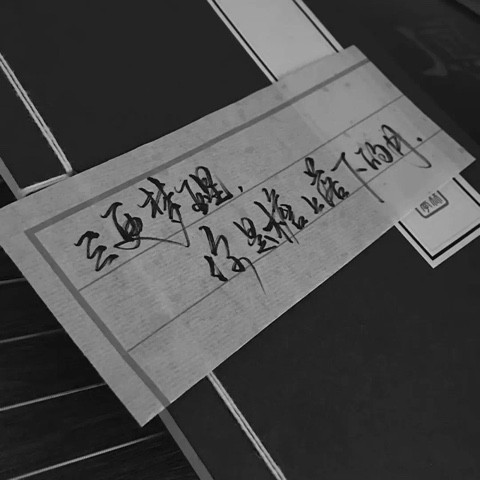 三更梦醒.
你是檐上落下的月.